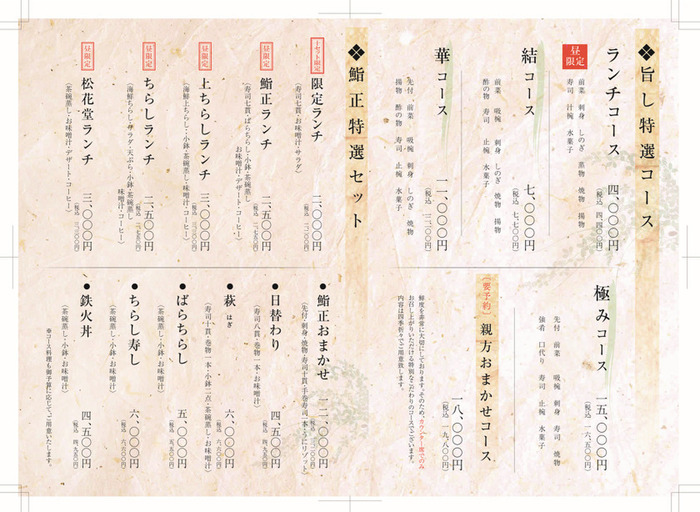 ❖旨し特選コース
昼限定
ランチコース 四、〇〇〇円
（税込 四、四〇〇円）
前菜 刺身 しのぎ 蒸物 焼物 揚物
寿司 汁椀 水菓子
結コース 七、〇〇〇円
（税込 七、七〇〇円）
前菜 吸椀 刺身 しのぎ 焼物 揚物
酢の物 寿司 止椀 水菓子
華コース 一一、〇〇〇円
先付 前菜 吸椀 刺身 しのぎ 焼物
揚物 酢の物 寿司 止椀 水菓子
極みコース 一五、〇〇〇円
（税込 一六、五〇〇円）
先付 前菜 吸椀 刺身 寿司 焼物
強肴 口代り 寿司 止椀 水菓子
（要予約）
親方おまかせコース
一八、〇〇〇円
（税込 一九、八〇〇円）
鮮度を非常に大切にしております。そのため、カウンター席でのみ
お召し上がりいただける特別なこだわりのコースでございます。
内容は四季折々でご用意致します。
❖鮨正特選セット
限定ランチ
（寿司七貫・お味噌汁・サラダ）
昼限定
鮨正ランチ
（寿司七貫・ばらちらし・小鉢・茶碗蒸し
お味噌汁・デザート・コーヒー）
昼限定
上ちらしランチ 三、〇〇〇円
（海鮮上ちらし・小鉢・茶碗蒸し・味噌汁・コーヒー）
昼限定
ちらしランチ 二、五〇〇円
（税込 二、七五〇円）
（海鮮ちらし・サラダ・天ぷら・小鉢・茶碗蒸し
味噌汁・コーヒー）
昼限定
松花堂ランチ 三、〇〇〇円
（茶碗蒸し・お味噌汁・デザート・コーヒー）
●鮨正おまかせ 一二、〇〇〇円
●日替わり 四、五〇〇円
（寿司八貫・巻物一本・お味噌汁）
●萩 はぎ 六、〇〇〇円
（寿司十貫・巻物一本・小鉢二点・茶碗蒸し・お味噌汁）
●ばらちらし 五、〇〇〇円
（税込 五、五〇〇円）
（茶碗蒸し・お味噌汁）
●ちらし寿し 六、〇〇〇円
（税込 六、六〇〇円）
（茶碗蒸し・お味噌汁）
●鉄火丼 四、五〇〇円
（税込 四、九五〇円）
（茶碗蒸し・お味噌汁）
※コース料理も御予算に応じてご用意いたします。